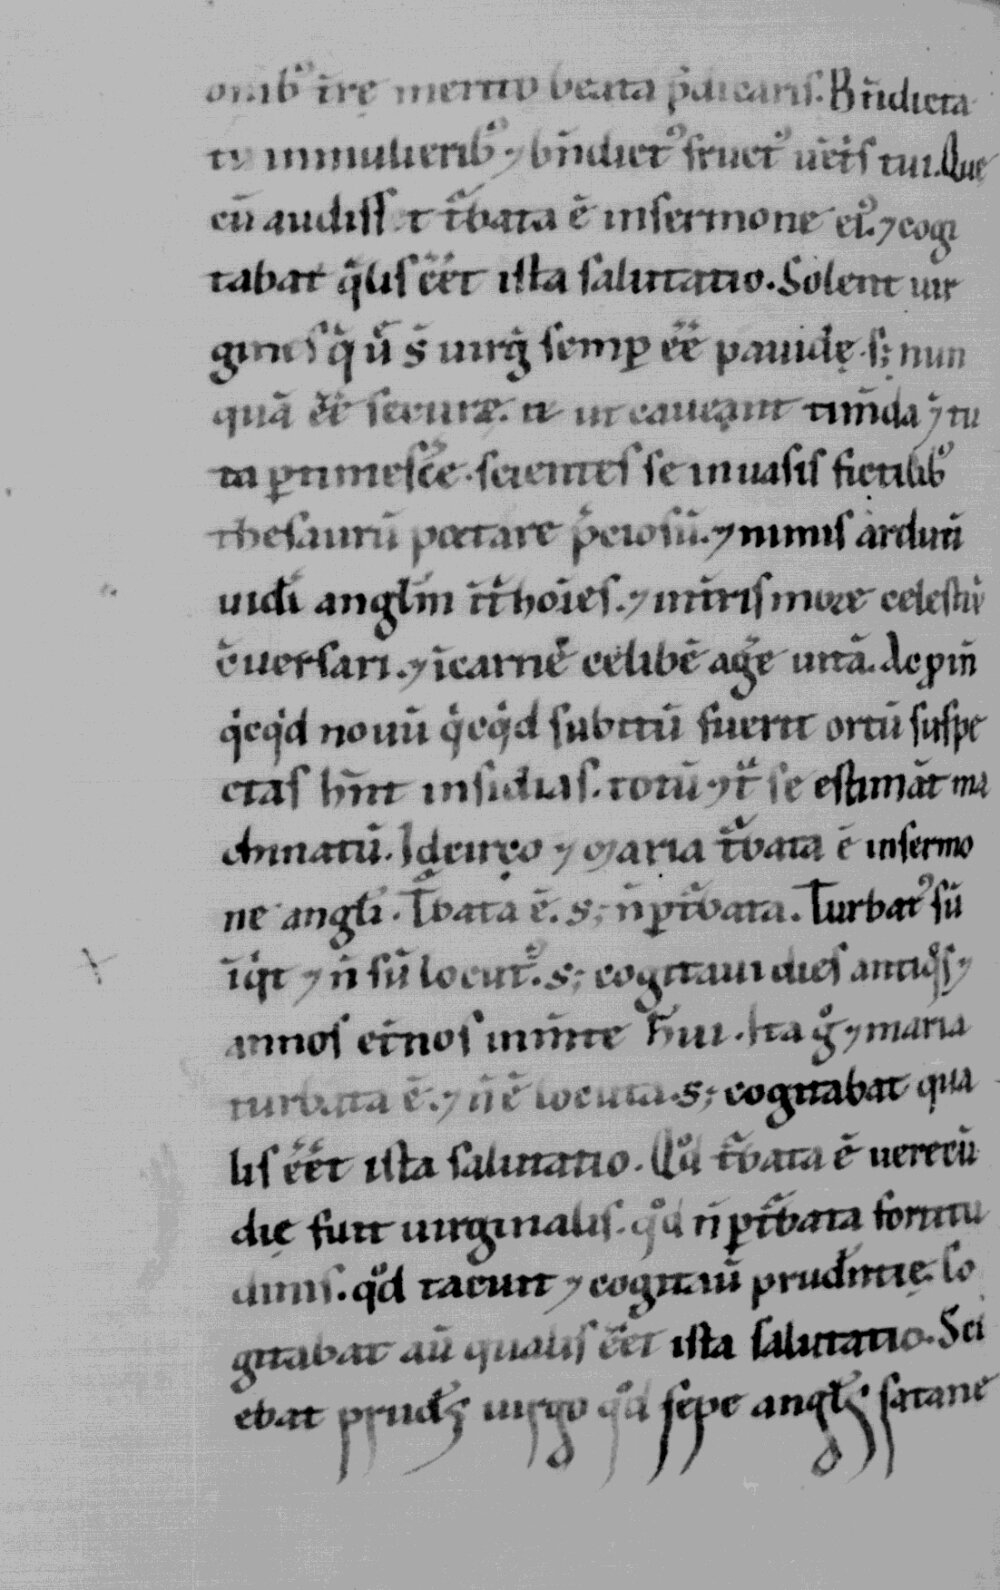 omıbꝰ t̄rę merito beata p̄dicaris. Bn̄dicta
tu inmulierib⁊ ⁊ bn̄dictꝰ fructꝰ uēt̄s tui. Que
cū audiss&t t̄bata ē insermone eiꝰ. ⁊ cogi
tabat q̄lis ēēt ista salutatio. Solent uir
gines q̄ ū s̄ uirḡ semꝑ ēē pauidę. s; nun
quā ēē secure. & ut caueant tim̄da ⁊̄ tu
ta ꝑtimesc̄e. scientes se inuasis fictilibꝰ
thesaurū portare p̄ciosū. ⁊ nimis arduū
uidi angl̄m īt̄ hoīes. ⁊ int̄ris more celestiū
c̄uersari. ⁊ īcarne celibē aḡe uitā. Ac ꝓin̄
q̇cq̇d nouū q̇cq̇d subitū fuerit ortū suspe
ctas hn̄t insidias. totū ⁊t̄ se estimāt ma
chinatū. Idcirco ⁊ maria t̄bata ē insermo
ne angl̄i. T̄bata ē. s; n̄ ꝑt̄bata. Turbatꝰ sū
īq̇t ⁊ n̄ sū locutꝰ. s; cogitaui dies antiq̊s ⁊
annos et̄nos inm̄te h̄ui. Ita g̊ ⁊ maria
turbata ē. ⁊ n̄ ē locuta. s; cogitabat qua
lis ēēt ista salutatio. Qd̄ t̄bata ē uerecū
dię fuit uirginalis. qd̄ n̄ ꝑt̄bata fortitu
dinis. qd̄ tacuit ⁊ cogitau̅ prud̄ntię. Co
gitabat aū qualis ēēt ista salutatio. Sci
ebat prud̄s uirgo qd̄ sepe angl̄s satane